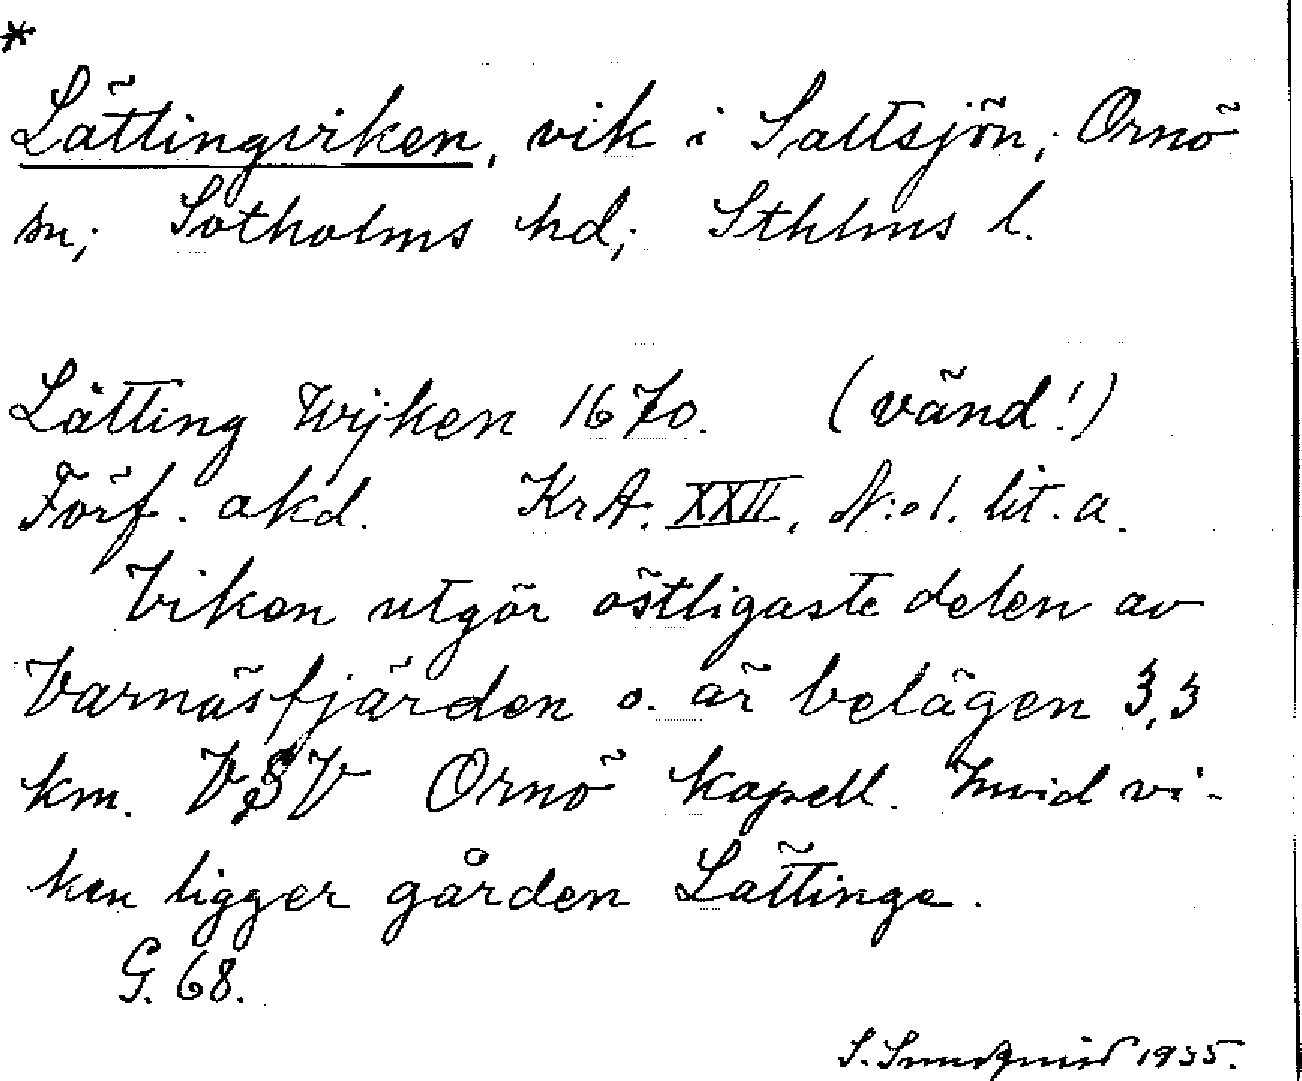 *
Lättingviken, vik i Saltsjön; Ornö
sn; Sotholms hd; Sthlms l.
Låtting Wijken 1670. (vänd!)
Förf. akd. KrA. XXII, N:o 1. lit. a.
Viken utgör östligaste delen av
Varnäsfjärden o. är belägen 3,3
km. VSV Ornö kapell. Invid vi-
ken ligger gården Lättinge.
G. 68.
S. 1935.